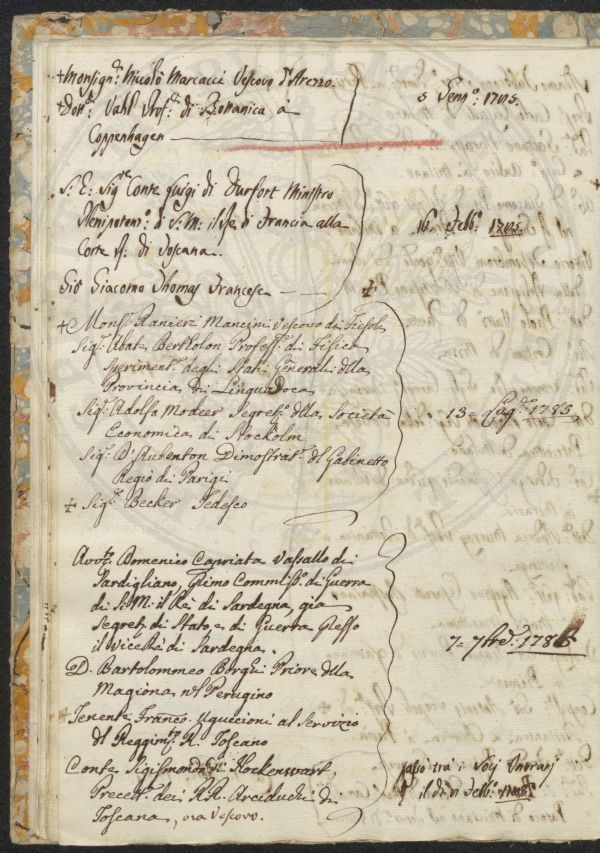 + Monsign.r Nicolò Marcacci Vescovo d'Arezzo.
+ Dott.r Vahl Prof.r di Bottanica a
Coppenhagen
5 Genn.o: 1785.
S: E: Sig.re Conte Luigi di Durfort Ministro
Plenipoten.o: di S: M: il Re di Francia alla
Corte R. di Toscana.
16. Febb.o: 1785.
Sig.
Giacomo Thomas Francese
+ Mons.r Ranieri Mancini Vescovo di Fiesole
Sig.r Abate Bertholon Profess.r di Fisica
Speriment.e degli Stati Generali della
Provincia di Linguadoca
Sig.r Adolfo Modeer Segret.o della Società
Economica di Stockolm
13= Lug.o 1785
Sig.r D'Aubenton Dimostrat.e del Gabinetto
Regio di Parigi
+ Sig.r Becker Tedesco
Avv.to Domenico Capriata Vassallo di
Pardigliano, Primo Commiss.o di Guerra
di S: M. il Re di Sardegna, già
Segret.o di Stato, e di Guerra presso
il Viceré di Sardegna.
7= 7bre: 1785
D. Bartolommeo Borghi Priore della
Magiona nel Perugino
+ Tenente Franco. Uguccioni al Servizio
del Reggim.to R. Toscano
Conte Sigismondo di Hockenwart,
Precett.e dei R.R. Arciduchi di
Toscana, ora Vescovo.
passò tra i Socj Onorarj
il dì
Febb.o